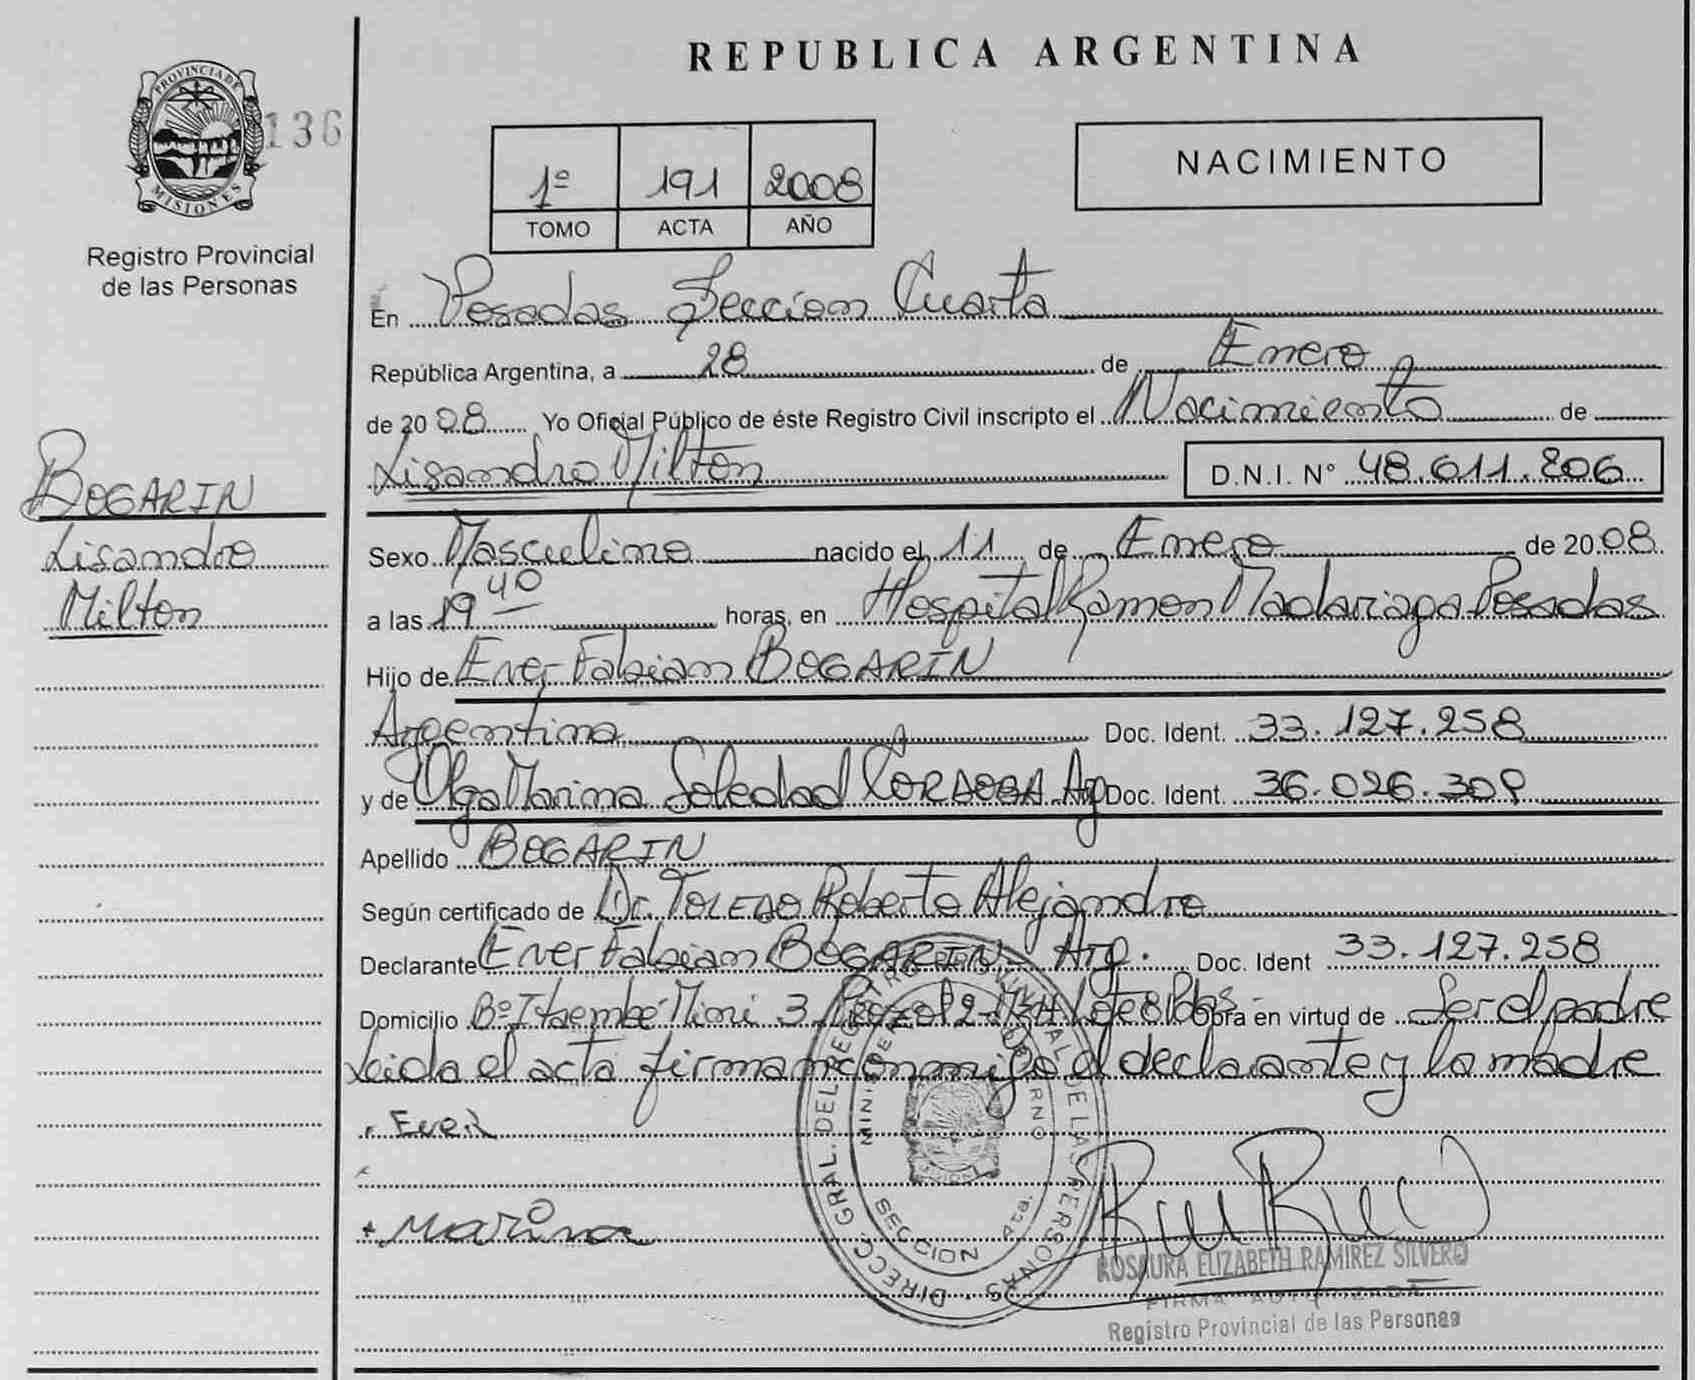 REPUBLICA ARGENTINA
PROVINCIA DE
MISIONES
136
Registro Provincial
de las Personas
1º 191 2008
TOMO ACTA AÑO
NACIMIENTO
En Posadas Seccion Cuarta
República Argentina, a 28 de Enero
de 2008 Yo Oficial Público de éste Registro Civil inscripto el Nacimiento de
Lisandro Milton D.N.I. Nº 48.611.206
BOGARIN
Lisandro
Milton
Sexo Masculino nacido el 11 de Enero de 2008
a las 19 40 horas, en Hospital Ramon Madariaga Posadas
Hijo de Ever Fabian BOGARIN
Argentina Doc. Ident. 33.127.258
y de Olga Marina Soledad CORDOBA Arg Doc. Ident. 36.026.309
Apellido BOGARIN
Según certificado de Dr. TOLEDO Roberto Alejandro
Declarante Ever Fabian BOGARIN - Arg. Doc. Ident 33.127.258
Domicilio Bº Itaembé Mini 3 Lote 8 Pdas - Obra en virtud de Ser el padre
Leida el acta firman conmigo el declarante y la madre
Ever
Marina
DIRECC. GRAL. DEL REGISTRO PROVINCIAL DE LAS PERSONAS
SECCION 4ta.
ROSAURA ELIZABETH RAMIREZ SILVERO
FIRMA AUTORIZADA
Registro Provincial de las Personas